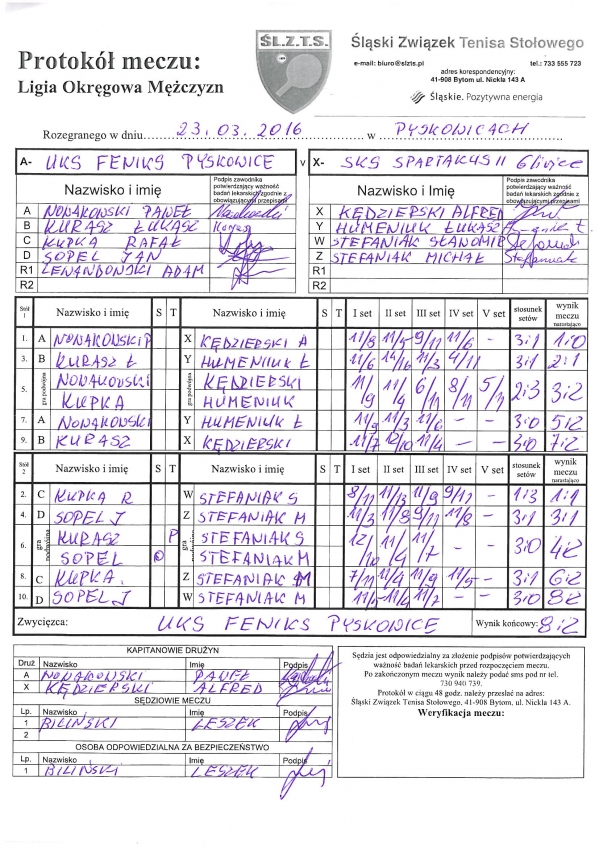 ŚL.Z.T.S.
Protokół meczu:
Ligia Okręgowa Mężczyzn
Śląski Związek Tenisa Stołowego
e-mail: biuro@slzts.pl tel.: 733 555 723
adres korespondencyjny:
41-908 Bytom ul. Nickla 143 A
Śląskie. Pozytywna energia
Rozegranego w dniu 23.03.2016 w PYSKOWICACH
A- UKS FENIKS PYSKOWICE v X- SKS SPARTAKUS II Gliwice
Nazwisko i imię Podpis zawodnika potwierdzający ważność badań lekarskich zgodnie z obowiązującymi przepisami Nazwisko i imię Podpis zawodnika potwierdzający ważność badań lekarskich zgodnie z obowiązującymi przepisami
A NOWAKOWSKI PAWEŁ X KĘDZIERSKI ALFRED
B KURASZ ŁUKASZ Y HUMENIUK ŁUKASZ
C KUPKA RAFAŁ W STEFANIAK SŁAWOMIR
D SOPEL JAN Z STEFANIAK MICHAŁ
R1 LEWANDOWSKI ADAM R1
R2 R2
Stół 1 Nazwisko i imię S T Nazwisko i imię S T I set II set III set IV set V set stosunek setów wynik meczu narastająco
1. A NOWAKOWSKI P X KĘDZIERSKI A 11/8 11/5 9/11 11/6 - 3:1 1:0
3. B KURASZ Ł Y HUMENIUK Ł 11/6 14/16 11/3 4/11 - 3:1 2:1
5. gra podwójna NOWAKOWSKI gra podwójna KĘDZIERSKI 11/9 11/4 6/11 8/11 5/11 2:3 3:2
KUPKA HUMENIUK
7. A NOWAKOWSKI Y HUMENIUK Ł 11/9 11/3 11/6 - - 3:0 5:2
9. B KURASZ X KĘDZIERSKI 11/7 12/10 11/4 - - 3:0 7:2
Stół 2 Nazwisko i imię S T Nazwisko i imię S T I set II set III set IV set V set stosunek setów wynik meczu narastająco
2. C KUPKA R W STEFANIAK S 8/11 11/13 11/9 9/11 - 1:3 1:1
4. D SOPEL J Z STEFANIAK M 11/3 11/8 9/11 11/8 - 3:1 3:1
6. gra podwójna KURASZ P STEFANIAK S 12/10 11/4 11/7 - - 3:0 4:2
SOPEL O STEFANIAK M
8. C KUPKA. Z STEFANIAK M 7/11 11/4 11/9 11/5 - 3:1 6:2
10. D SOPEL J W STEFANIAK M 11/5 11/4 11/2 - - 3:0 8:2
Zwycięzca: UKS FENIKS PYSKOWICE Wynik końcowy: 8:2
KAPITANOWIE DRUŻYN
Druż Nazwisko Imię Podpis
A NOWAKOWSKI PAWEŁ
X KĘDZIERSKI ALFRED
SĘDZIOWIE MECZU
Lp. Nazwisko Imię Podpis
1 BILIŃSKI LESZEK
2
OSOBA ODPOWIEDZIALNA ZA BEZPIECZEŃSTWO
Lp. Nazwisko Imię Podpis
1 BILIŃSKI LESZEK
Sędzia jest odpowiedzialny za złożenie podpisów potwierdzających
ważność badań lekarskich przed rozpoczęciem meczu.
Po zakończonym meczu wynik należy podać sms pod nr tel.
730 940 739.
Protokół w ciągu 48 godz. należy przesłać na adres:
Śląski Związek Tenisa Stołowego, 41-908 Bytom, ul. Nickla 143 A.
Weryfikacja meczu: